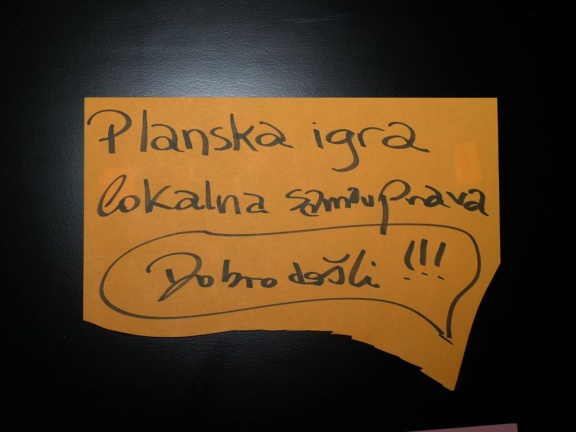 Planska igra
lokalna samouprava
Dobro došli !!!